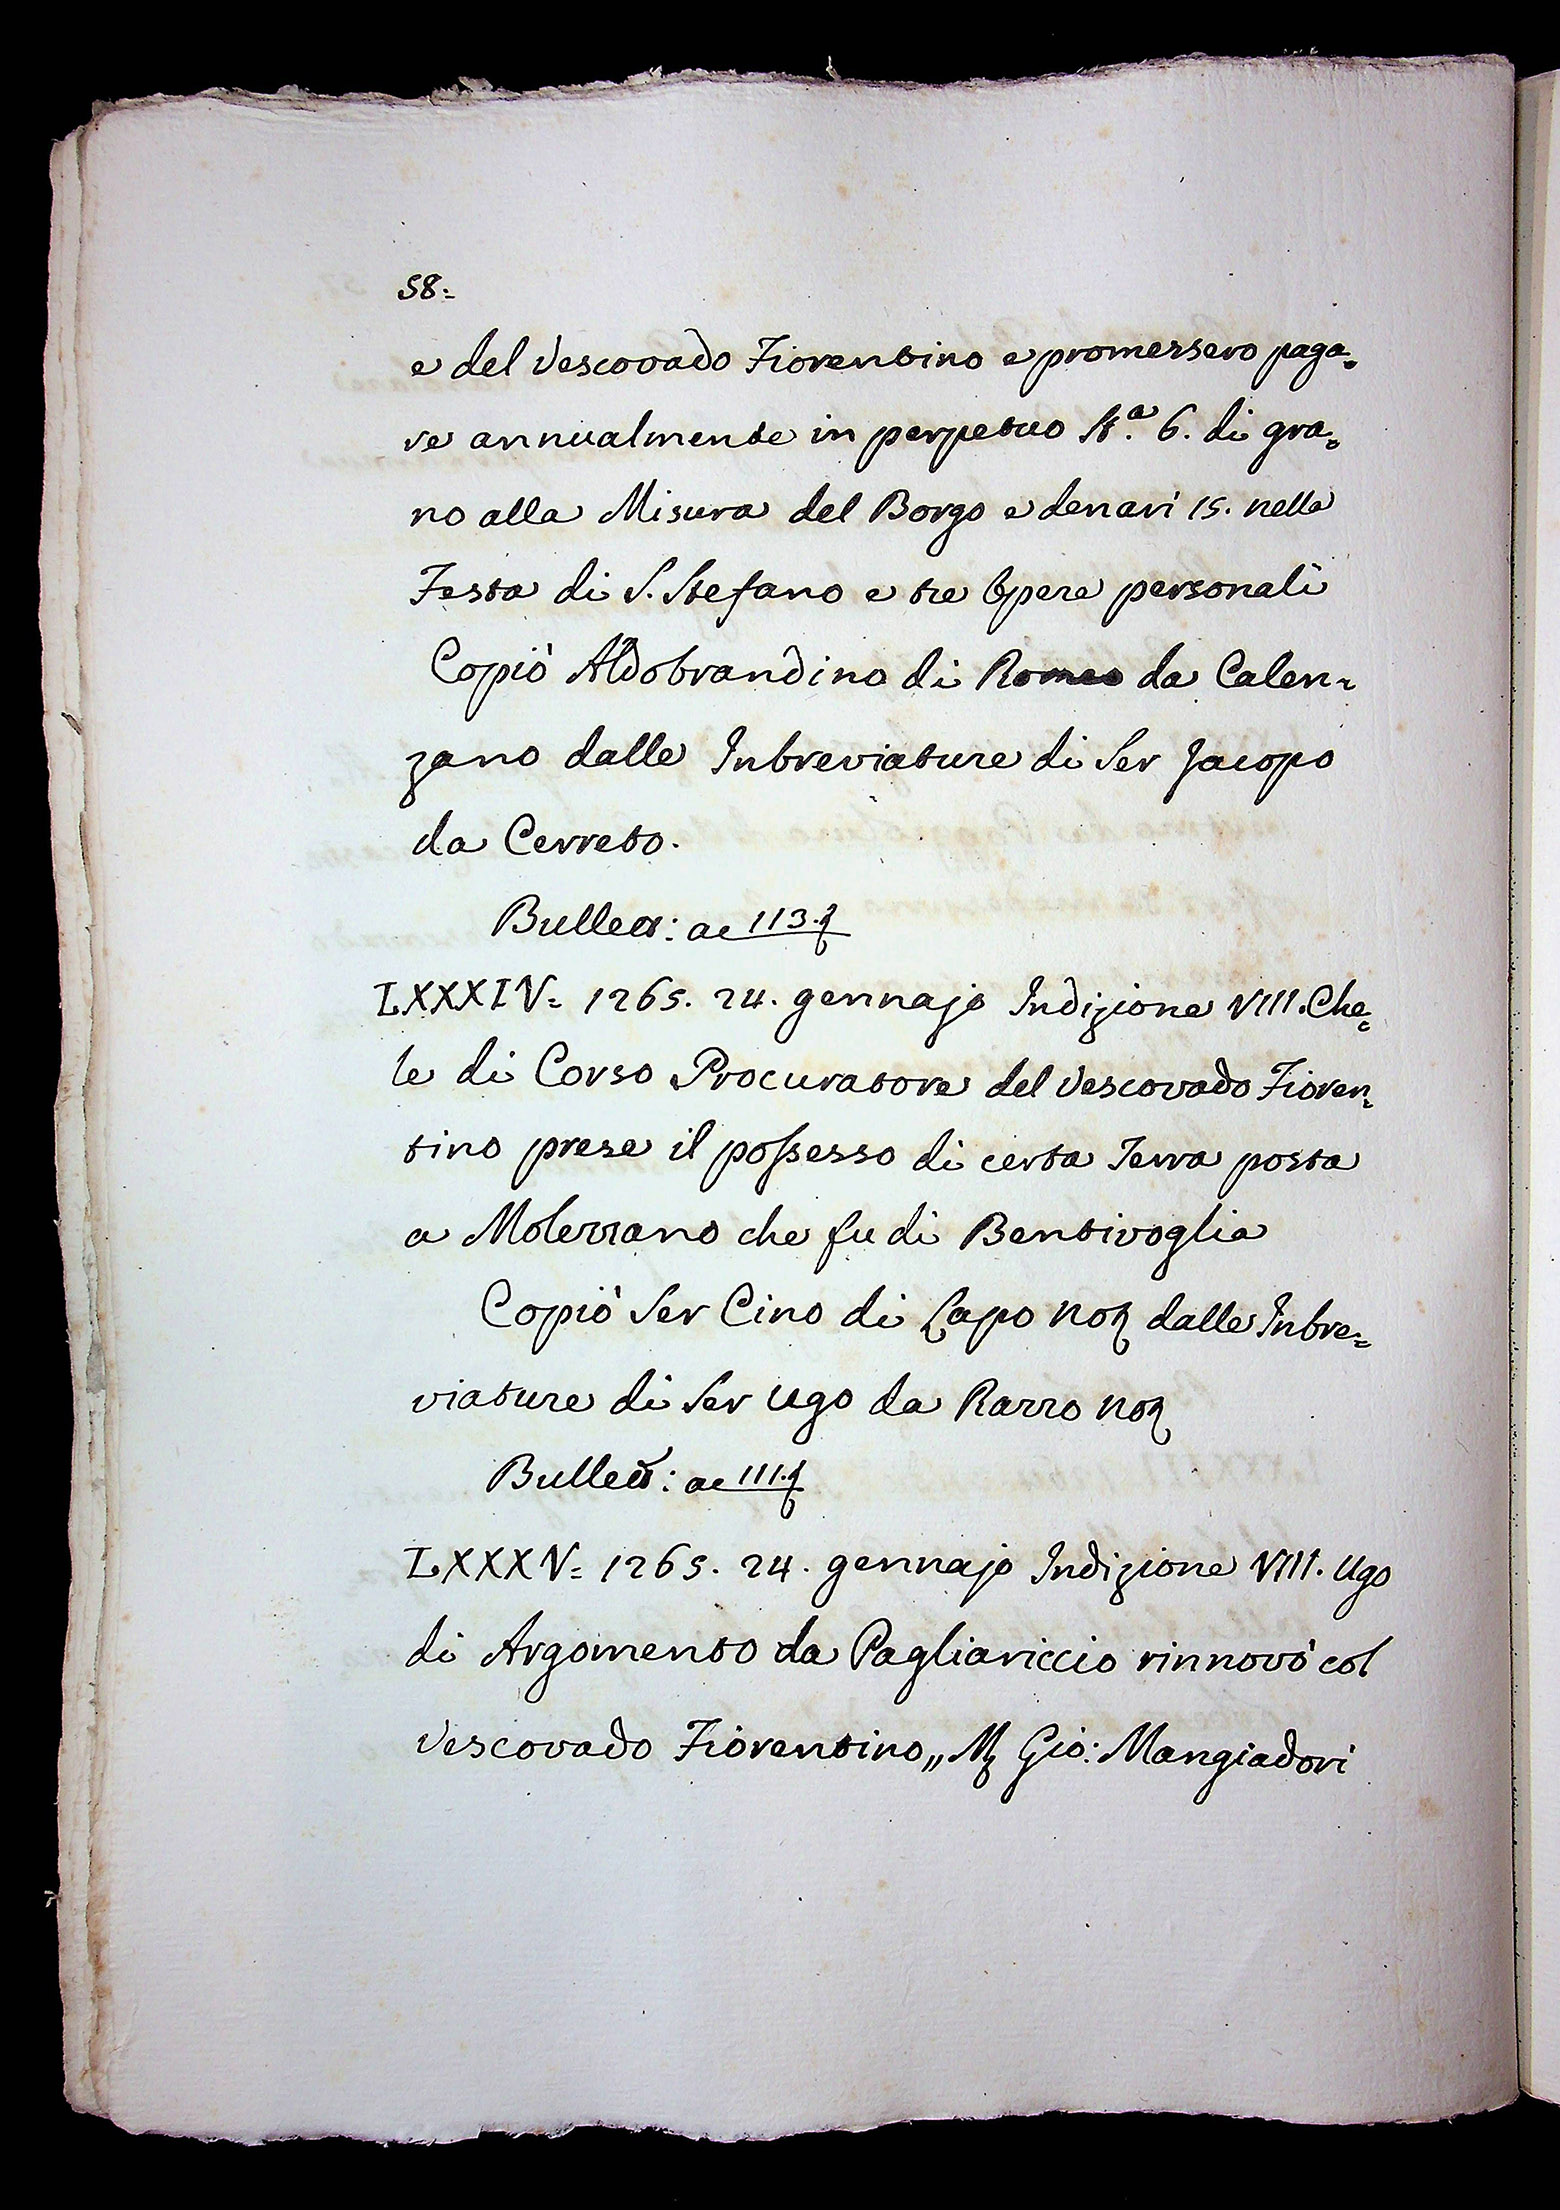 58.=
e del Vescovado Fiorentino e promessero paga=
re annualmente in perpetuo St.ª 6. di gra=
no alla Misura del Borgo e denari 15. nella
Festa di S. Stefano e tre Opere personali
Copiò Aldobrandino di Romeo da Calen=
zano dalle Inbreviature di Ser Jacopo
da Cerreto.
113.
LXXXIV= 1265. 24. gennajo Indizione VIII. Che=
le di Corso Procuratore del Vescovado Fioren=
tino prese il possesso di certa Terra posta
a Molezzano che fu di Bentivoglia
Copiò Ser Cino di Lapo Not dalle Inbre=
viature di Ser Ugo da Razzo Not
111.
LXXXV= 1265. 24. gennajo Indizione VIII. Ugo
di Argomento da Pagliariccio rinnovò col
Vescovado Fiorentino,, M Gio: Mangiadori